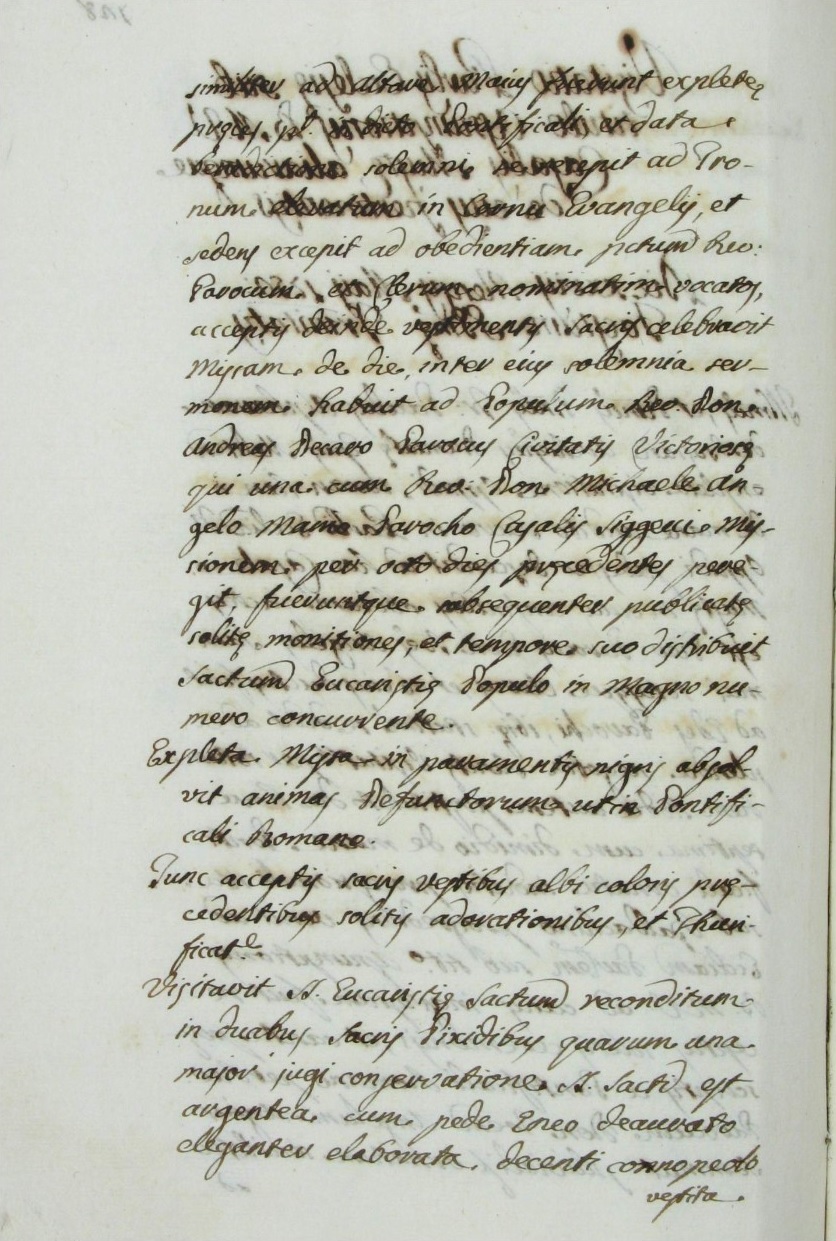 similiter ad Altare Maius fuerunt expletę
pręces pt. in dicto Pontificali, et data
benedictione solemni se recepit ad Tro-
num elevatum in Cornu Evangelij, et
sedens excepit ad obedientiam pctum Reu:
Parocum, et Clerum nominatim vocatos,
acceptis deinde vestimentis sacris celebravit
Missam de die, inter eius solemnia ser-
monem habuit ad Populum Reu: Don
Andreas Decaro Parocus Civitatis Victoriosę
qui una cum Reu: Don Michaele An-
gelo Mamo Parocho Casalis Siggeui Mis-
sionem per octo dies pręcedentes pere-
git, fueruntque subsequenter publicatę
solitę monitiones, et tempore suo distribuit
Sactum Eucaristię Populo in Magno nu-
mero concurrente.
Expleta Missa in paramentis nigris absol-
vit animas Defunctorum ut in Pontifi-
cali Romano.
Tunc acceptis sacris vestibus albi coloris prę-
cedentibus solitis adorationibus, et Thuri-
ficat.e
Visitavit SS. Eucaristię Sactum reconditum
in duabus Sacris Pixidibus quarum una
major jugi conservatione SS. Sacti est
argentea cum pede Eneo deaurato
eleganter elaborata, decenti connopeolo
vestita.